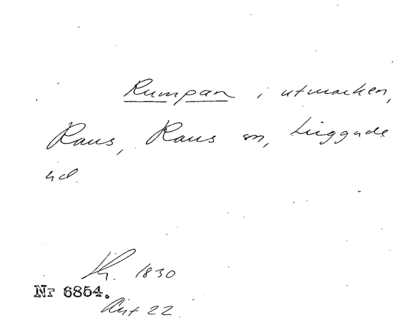 Rumpan i utmarken,
Raus, Raus sn, Luggude
hd.
1830
Nr 6854.
22.